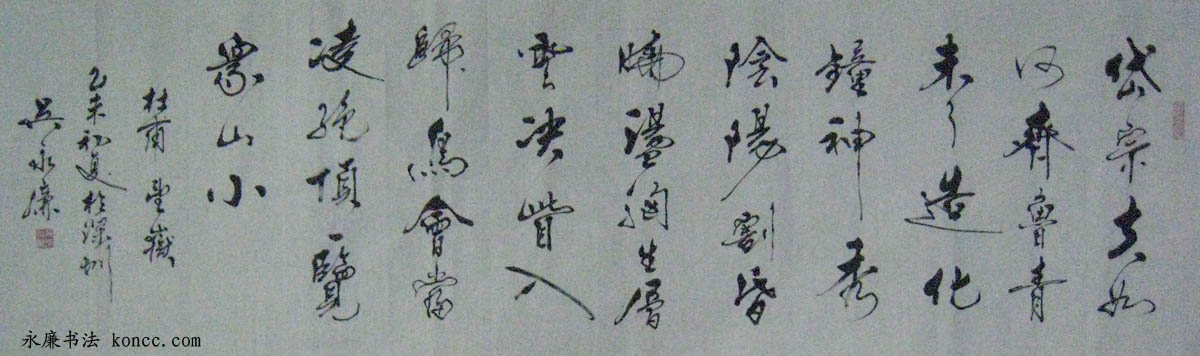 岱宗夫如
何齊魯青
未了造化
鐘神秀
陰陽割昏
曉盪胸生層
雲決眥入
歸鳥會當
凌絕頂一覽
眾山小
杜甫 望嶽
乙未初夏於深圳
吴永廉
永廉书法 koncc.com